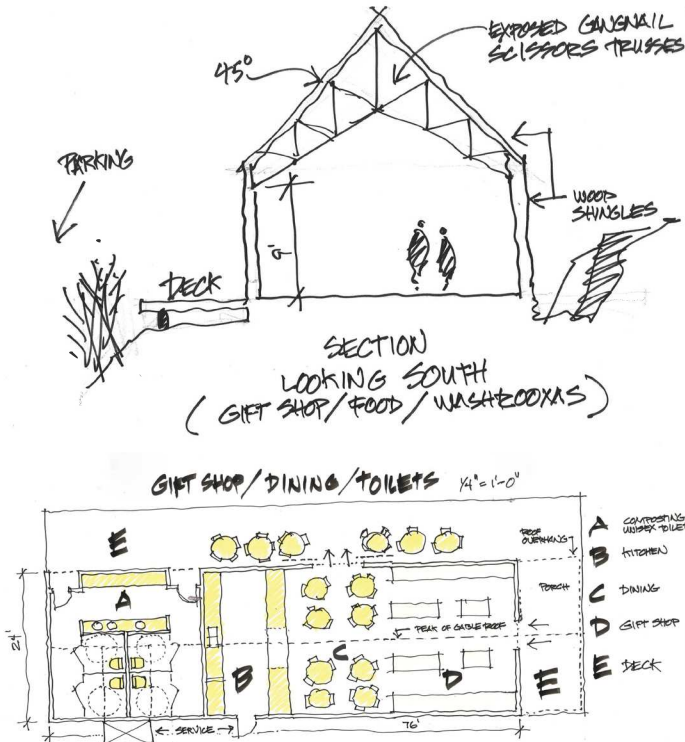 EXPOSED GANGNAIL
SCISSORS TRUSSES
45°
PARKING
WOOD
SHINGLES
9'
DECK
SECTION
LOOKING SOUTH
( GIFT SHOP / FOOD / WASHROOMS )
GIFT SHOP / DINING / TOILETS 1/4" = 1'-0"
E
ROOF
OVERHANG
A
PORCH
24'
PEAK OF GABLE ROOF
C
B
D
E
SERVICE
76'
A COMPOSTING
UNISEX TOILET
B KITCHEN
C DINING
D GIFT SHOP
E DECK